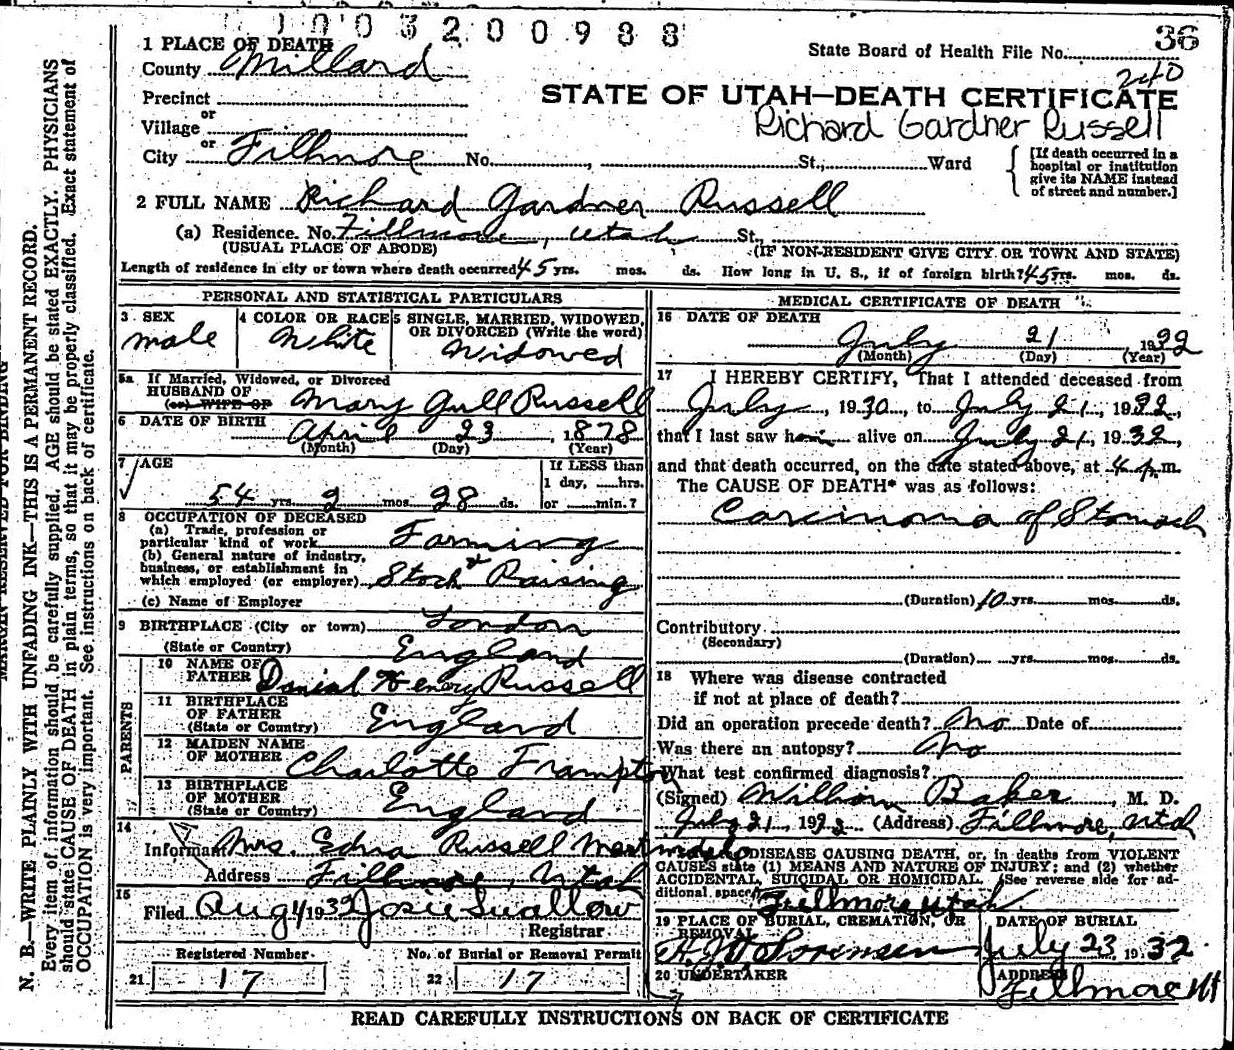 1003200988
36
State Board of Health File No.
240
1 PLACE OF DEATH
County Millard
STATE OF UTAH—DEATH CERTIFICATE
Precinct
or
Village
or
Richard Gardner Russell
City Fillmore No. , St., Ward
[If death occurred in a hospital or institution give its NAME instead of street and number.]
2 FULL NAME Richard Gardner Russell
(a) Residence. No. Fillmore, Utah St.,
(USUAL PLACE OF ABODE) (IF NON-RESIDENT GIVE CITY OR TOWN AND STATE)
Length of residence in city or town where death occurred 45 yrs. mos. ds. How long in U. S., if of foreign birth? 45 yrs. mos. ds.
PERSONAL AND STATISTICAL PARTICULARS
3 SEX
male
4 COLOR OR RACE
White
5 SINGLE, MARRIED, WIDOWED, OR DIVORCED (Write the word)
Widowed
5a If Married, Widowed, or Divorced
HUSBAND OF
(or) WIFE OF
Mary Gull Russell
6 DATE OF BIRTH
April 23, 1878
(Month) (Day) (Year)
7 AGE
54 yrs. 2 mos. 28 ds.
If LESS than
1 day, hrs.
or min.?
8 OCCUPATION OF DECEASED
(a) Trade, profession or
particular kind of work Farming
(b) General nature of industry,
business, or establishment in
which employed (or employer) & Stock Raising
(c) Name of Employer
9 BIRTHPLACE (City or town) London
(State or Country) England
PARENTS
10 NAME OF
FATHER Danial Henery Russell
11 BIRTHPLACE
OF FATHER
(State or Country) England
12 MAIDEN NAME
OF MOTHER Charlotte Frampton
13 BIRTHPLACE
OF MOTHER
(State or Country) England
14
Informant Mrs. Edna Russell
Address Fillmore, Utah
15
Filed Aug 4 1932 Josie Swallow
Registrar
Registered Number
21 17
No. of Burial or Removal Permit
22 17
MEDICAL CERTIFICATE OF DEATH
16 DATE OF DEATH
July 21, 1932
(Month) (Day) (Year)
17 I HEREBY CERTIFY, That I attended deceased from
July, 1930, to July 21, 1932,
that I last saw him alive on July 21, 1932,
and that death occurred, on the date stated above, at 4 p.m.
The CAUSE OF DEATH* was as follows:
Carcinoma of Stomach
(Duration) 10 yrs. mos. ds.
Contributory
(Secondary)
(Duration) yrs. mos. ds.
18 Where was disease contracted
if not at place of death?
Did an operation precede death? No Date of
Was there an autopsy? No
What test confirmed diagnosis?
(Signed) William Baker, M. D.
July 21, 1932 (Address) Fillmore, Utah
DISEASE CAUSING DEATH, or, in deaths from VIOLENT
CAUSES state (1) MEANS AND NATURE OF INJURY; and (2) whether
ACCIDENTAL, SUICIDAL OR HOMICIDAL. (See reverse side for ad-
ditional space)
19 PLACE OF BURIAL, CREMATION, OR
REMOVAL
Fillmore Utah
DATE OF BURIAL
July 23, 1932
20 UNDERTAKER
Sorensen
ADDRESS
Fillmore Ut
READ CAREFULLY INSTRUCTIONS ON BACK OF CERTIFICATE
MARGIN RESERVED FOR BINDING
N. B.—WRITE PLAINLY WITH UNFADING INK—THIS IS A PERMANENT RECORD.
Every item of information should be carefully supplied. AGE should be stated EXACTLY. PHYSICIANS
should state CAUSE OF DEATH in plain terms, so that it may be properly classified. Exact statement of
OCCUPATION is very important. See instructions on back of certificate.